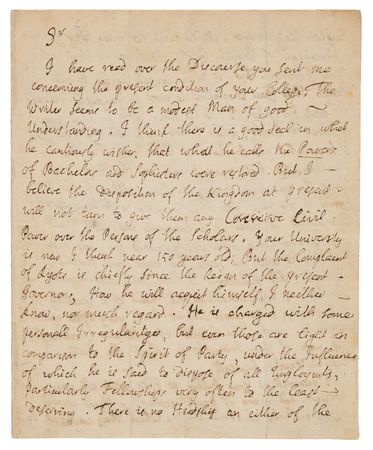 Sr
I have read over the Discourse you sent me
concerning the present condition of your College. The
Writer seems to be a modest Man of good
Understanding. I think there is a good deal in what
he cautiously wishes, that what he calls the Powers
of Bachelors and Sophisters were restored. But I
believe the Disposition of the Kingdom at present
will not turn to give them any Coercive Civil
Power over the Persons of the Scholars. Your University
is now I think near 150 years old; But the Complaint
of Ryots is chiefly since the Reign of the present
Governor, How he will acquitt himself, I neither
know, nor much regard. He is charged with some
personall Irregularityes, but even those are light in
comparison to the Spirit of Party, under the Influence
of which he is said to dispose of all Employmts,
particularly Fellowships very often to the least
deserving. There is no Headship in either of the